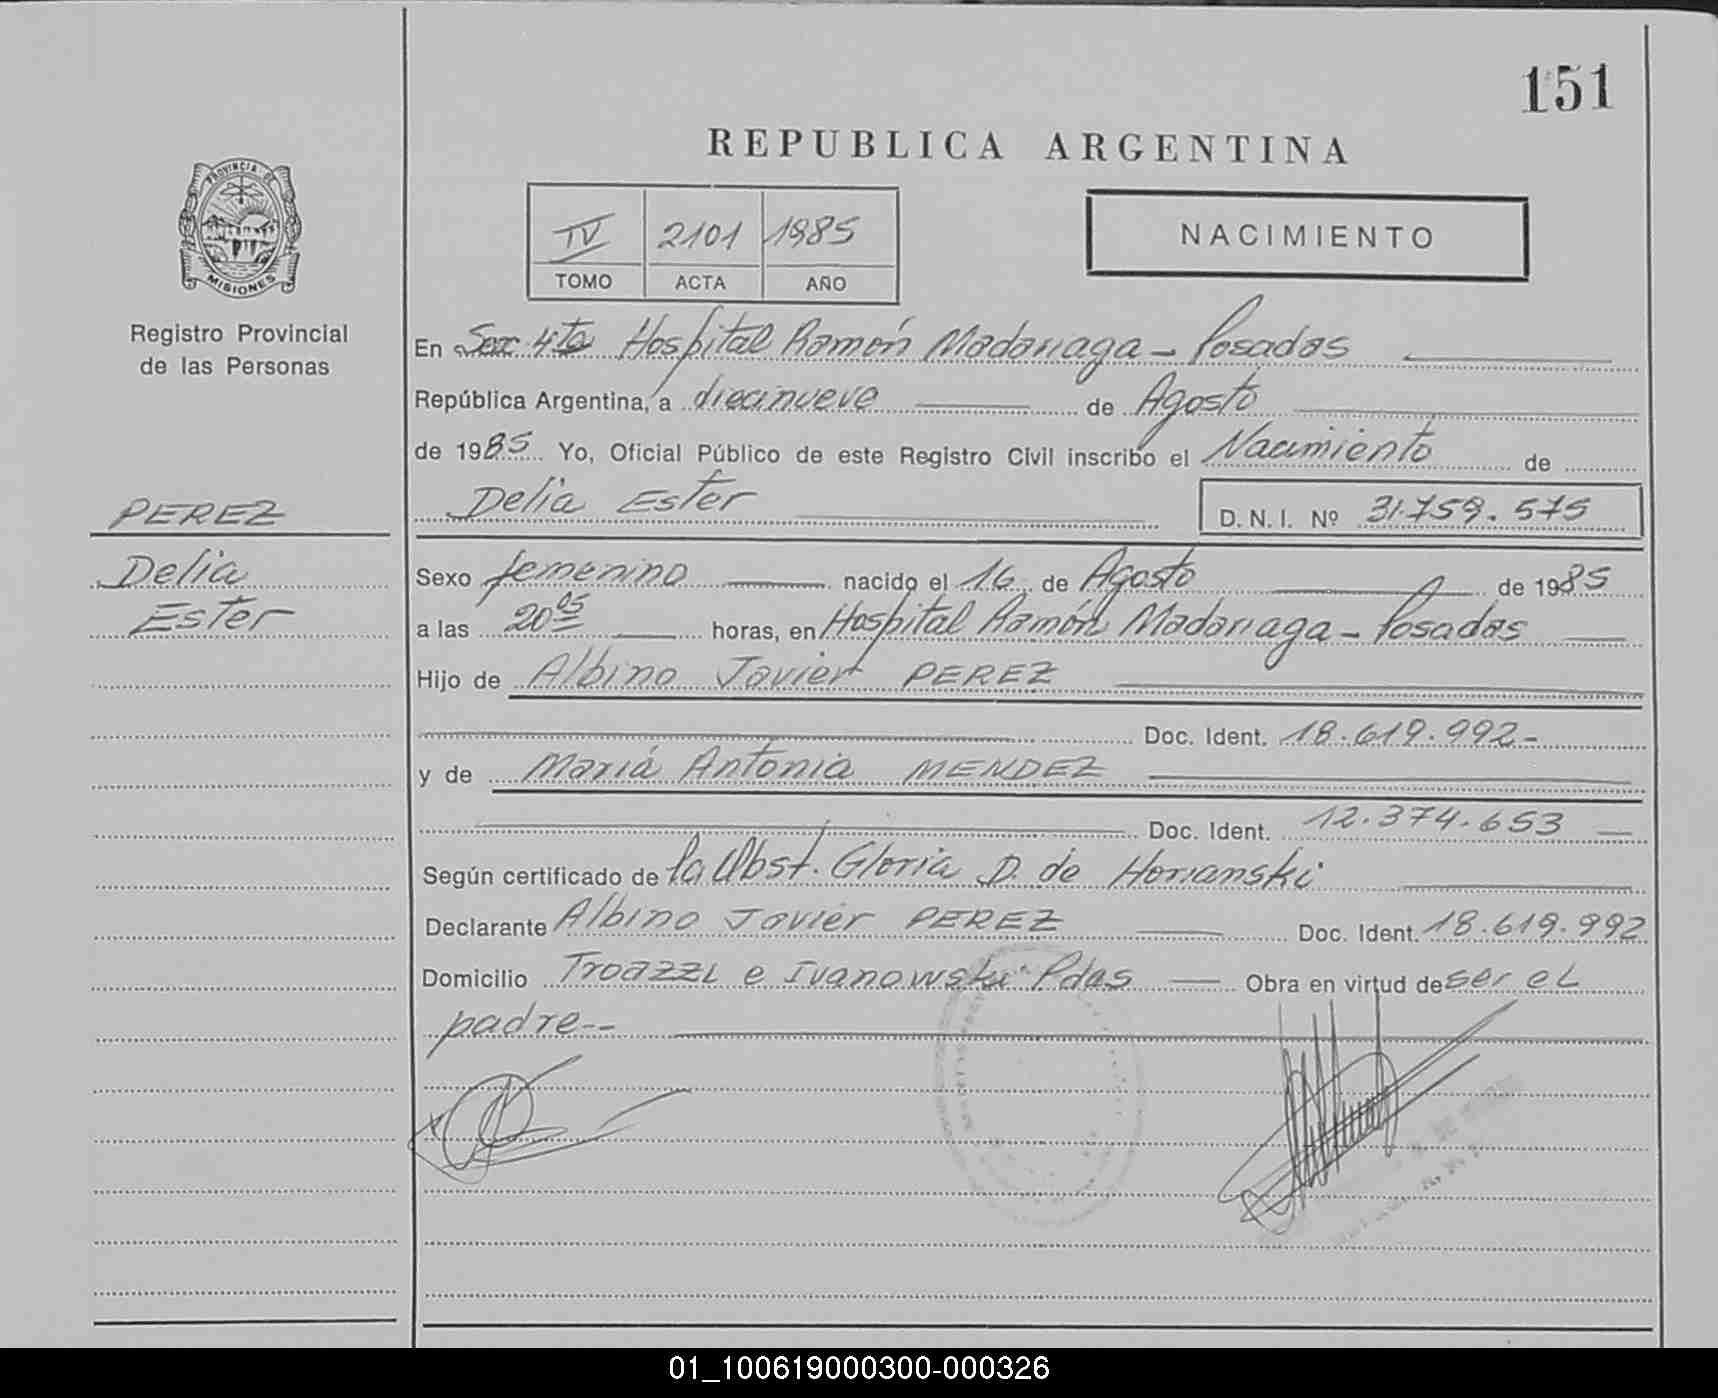 151
REPUBLICA ARGENTINA
PROVINCIA DE
MISIONES
Registro Provincial
de las Personas
IV 2101 1985
TOMO ACTA AÑO
NACIMIENTO
PEREZ
Delia
Ester
En Sec 4ta Hospital Ramón Madariaga - Posadas
República Argentina, a diecinueve de Agosto
de 1985 Yo, Oficial Público de este Registro Civil inscribo el Nacimiento de
Delia Ester D.N.I. Nº 31.759.575
Sexo femenino nacido el 16 de Agosto de 1985
a las 20 05 horas, en Hospital Ramón Madariaga - Posadas
Hijo de Albino Javier PEREZ
Doc. Ident. 18.619.992-
y de María Antonia MENDEZ
Doc. Ident. 12.374.653
Según certificado de la Obst. Gloria D. de Horianski
Declarante Albino Javier PEREZ Doc. Ident. 18.619.992
Domicilio Troazzi e Ivanowski Pdas Obra en virtud de ser el
padre--
01_100619000300-000326